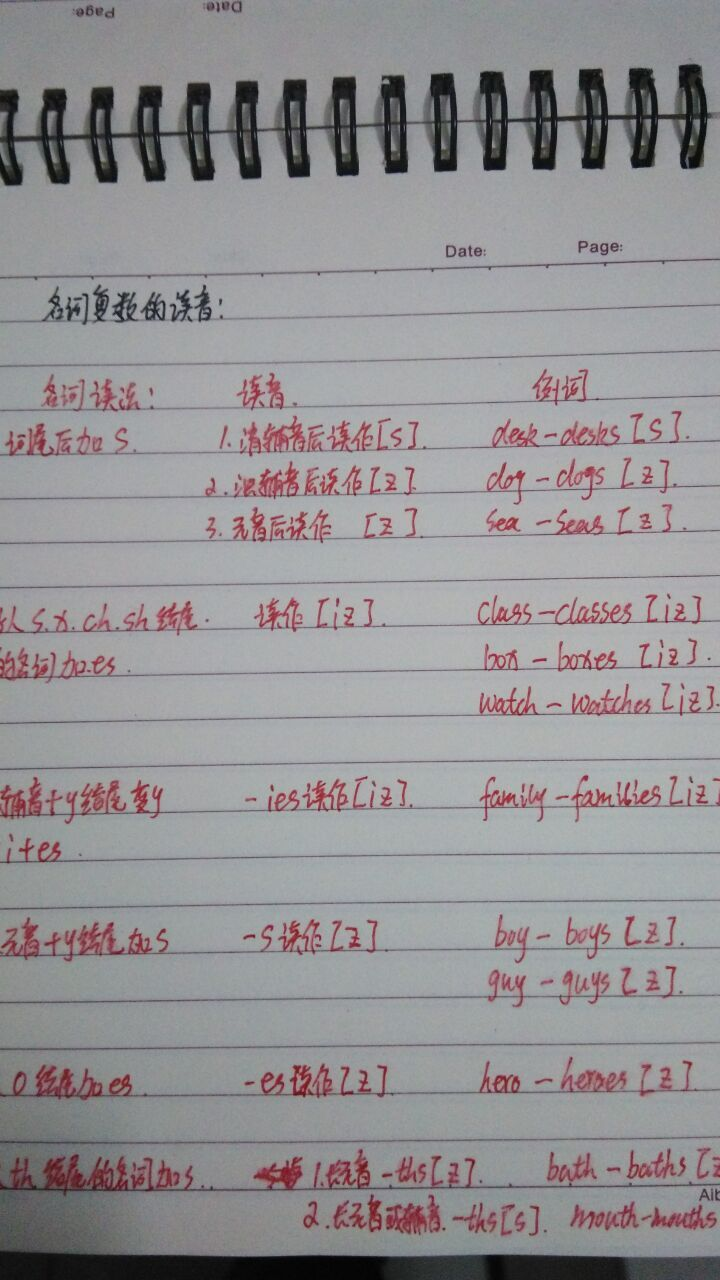 Date:
Page:
Date: Page:
名词复数的读音:
名词读法: 读音. 例词
词尾后加S. 1.清辅音后读作[s]. desk-desks [s].
2.浊辅音后读作[z]. dog-dogs [z].
3.元音后读作 [z]. sea-seas [z].
以s.x.ch.sh结尾. 读作[iz]. class-classes [iz]
的名词加es. box-boxes [iz].
watch-watches [iz].
辅音+y结尾变y -ies读作[iz]. family-families [iz]
i+es.
元音+y结尾加s -s读作[z]. boy-boys [z].
guy-guys [z].
o结尾加es. -es读作[z]. hero-heroes [z].
th结尾的名词加s. 1.长元音-ths[z]. bath-baths [z
2.长元音或辅音.-ths[s]. mouth-mouths